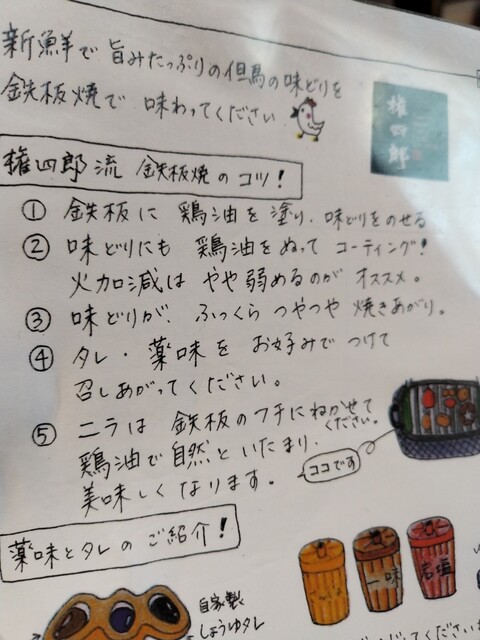 新鮮で旨みたっぷりの但馬の味どりを
鉄板焼で 味わってください
権四郎
権四郎流 鉄板焼のコツ!
① 鉄板に 鶏油を塗り、味どりをのせる
② 味どりにも 鶏油をぬって コーティング!
火加減は やや弱めるのが オススメ。
③ 味どりが、ふっくら つやつや 焼きあがり。
④ タレ・薬味を お好みで つけて
召しあがってください。
⑤ ニラは 鉄板のフチにねかせて
ください。
鶏油で自然といたまり、
美味しくなります。
ココです
薬味とタレの ご紹介!
自家製
しょうゆタレ
一味
岩塩